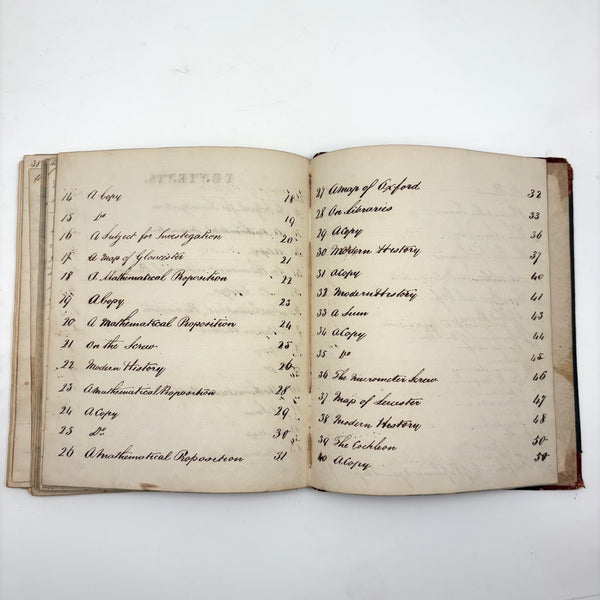 CONTENTS.
14 A Copy 18
15 Do 19
16 A Subject for Investigation 20
17 A Map of Gloucester 21
18 A Mathematical Proposition 22
19 A Copy 23
20 A Mathematical Proposition 24
21 On the Screw 25
22 Modern History 26
23 A Mathematical Proposition 28
24 A Copy 29
25 Do 30
26 A Mathematical Proposition 31
27 A map of Oxford 32
28 On Libraries 33
29 A Copy 36
30 Modern History 37
31 A Copy 40
32 Modern History 41
33 A Sum 43
34 A Copy 44
35 Do 45
36 The Micrometer Screw 46
37 Map of Leicester 47
38 Modern History 48
39 The Cochleon 50
40 A Copy